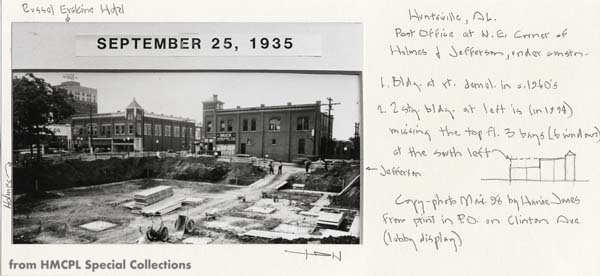 Russel Erskine Hotel
SEPTEMBER 25, 1935
Holmes
Jefferson
from HMCPL Special Collections
Huntsville, AL.
Post Office at N.E. Corner of
Holmes & Jefferson, under constr.
1. Bldg. at rt. demol. in c.1960's
2. 2 stry bldg. at left is (in 1994)
missing the top fl. 3 bays (6 windows)
at the south left
Copy-photo Mar. 98 by
Jones
From print in P.O. on Clinton Ave
(lobby display)